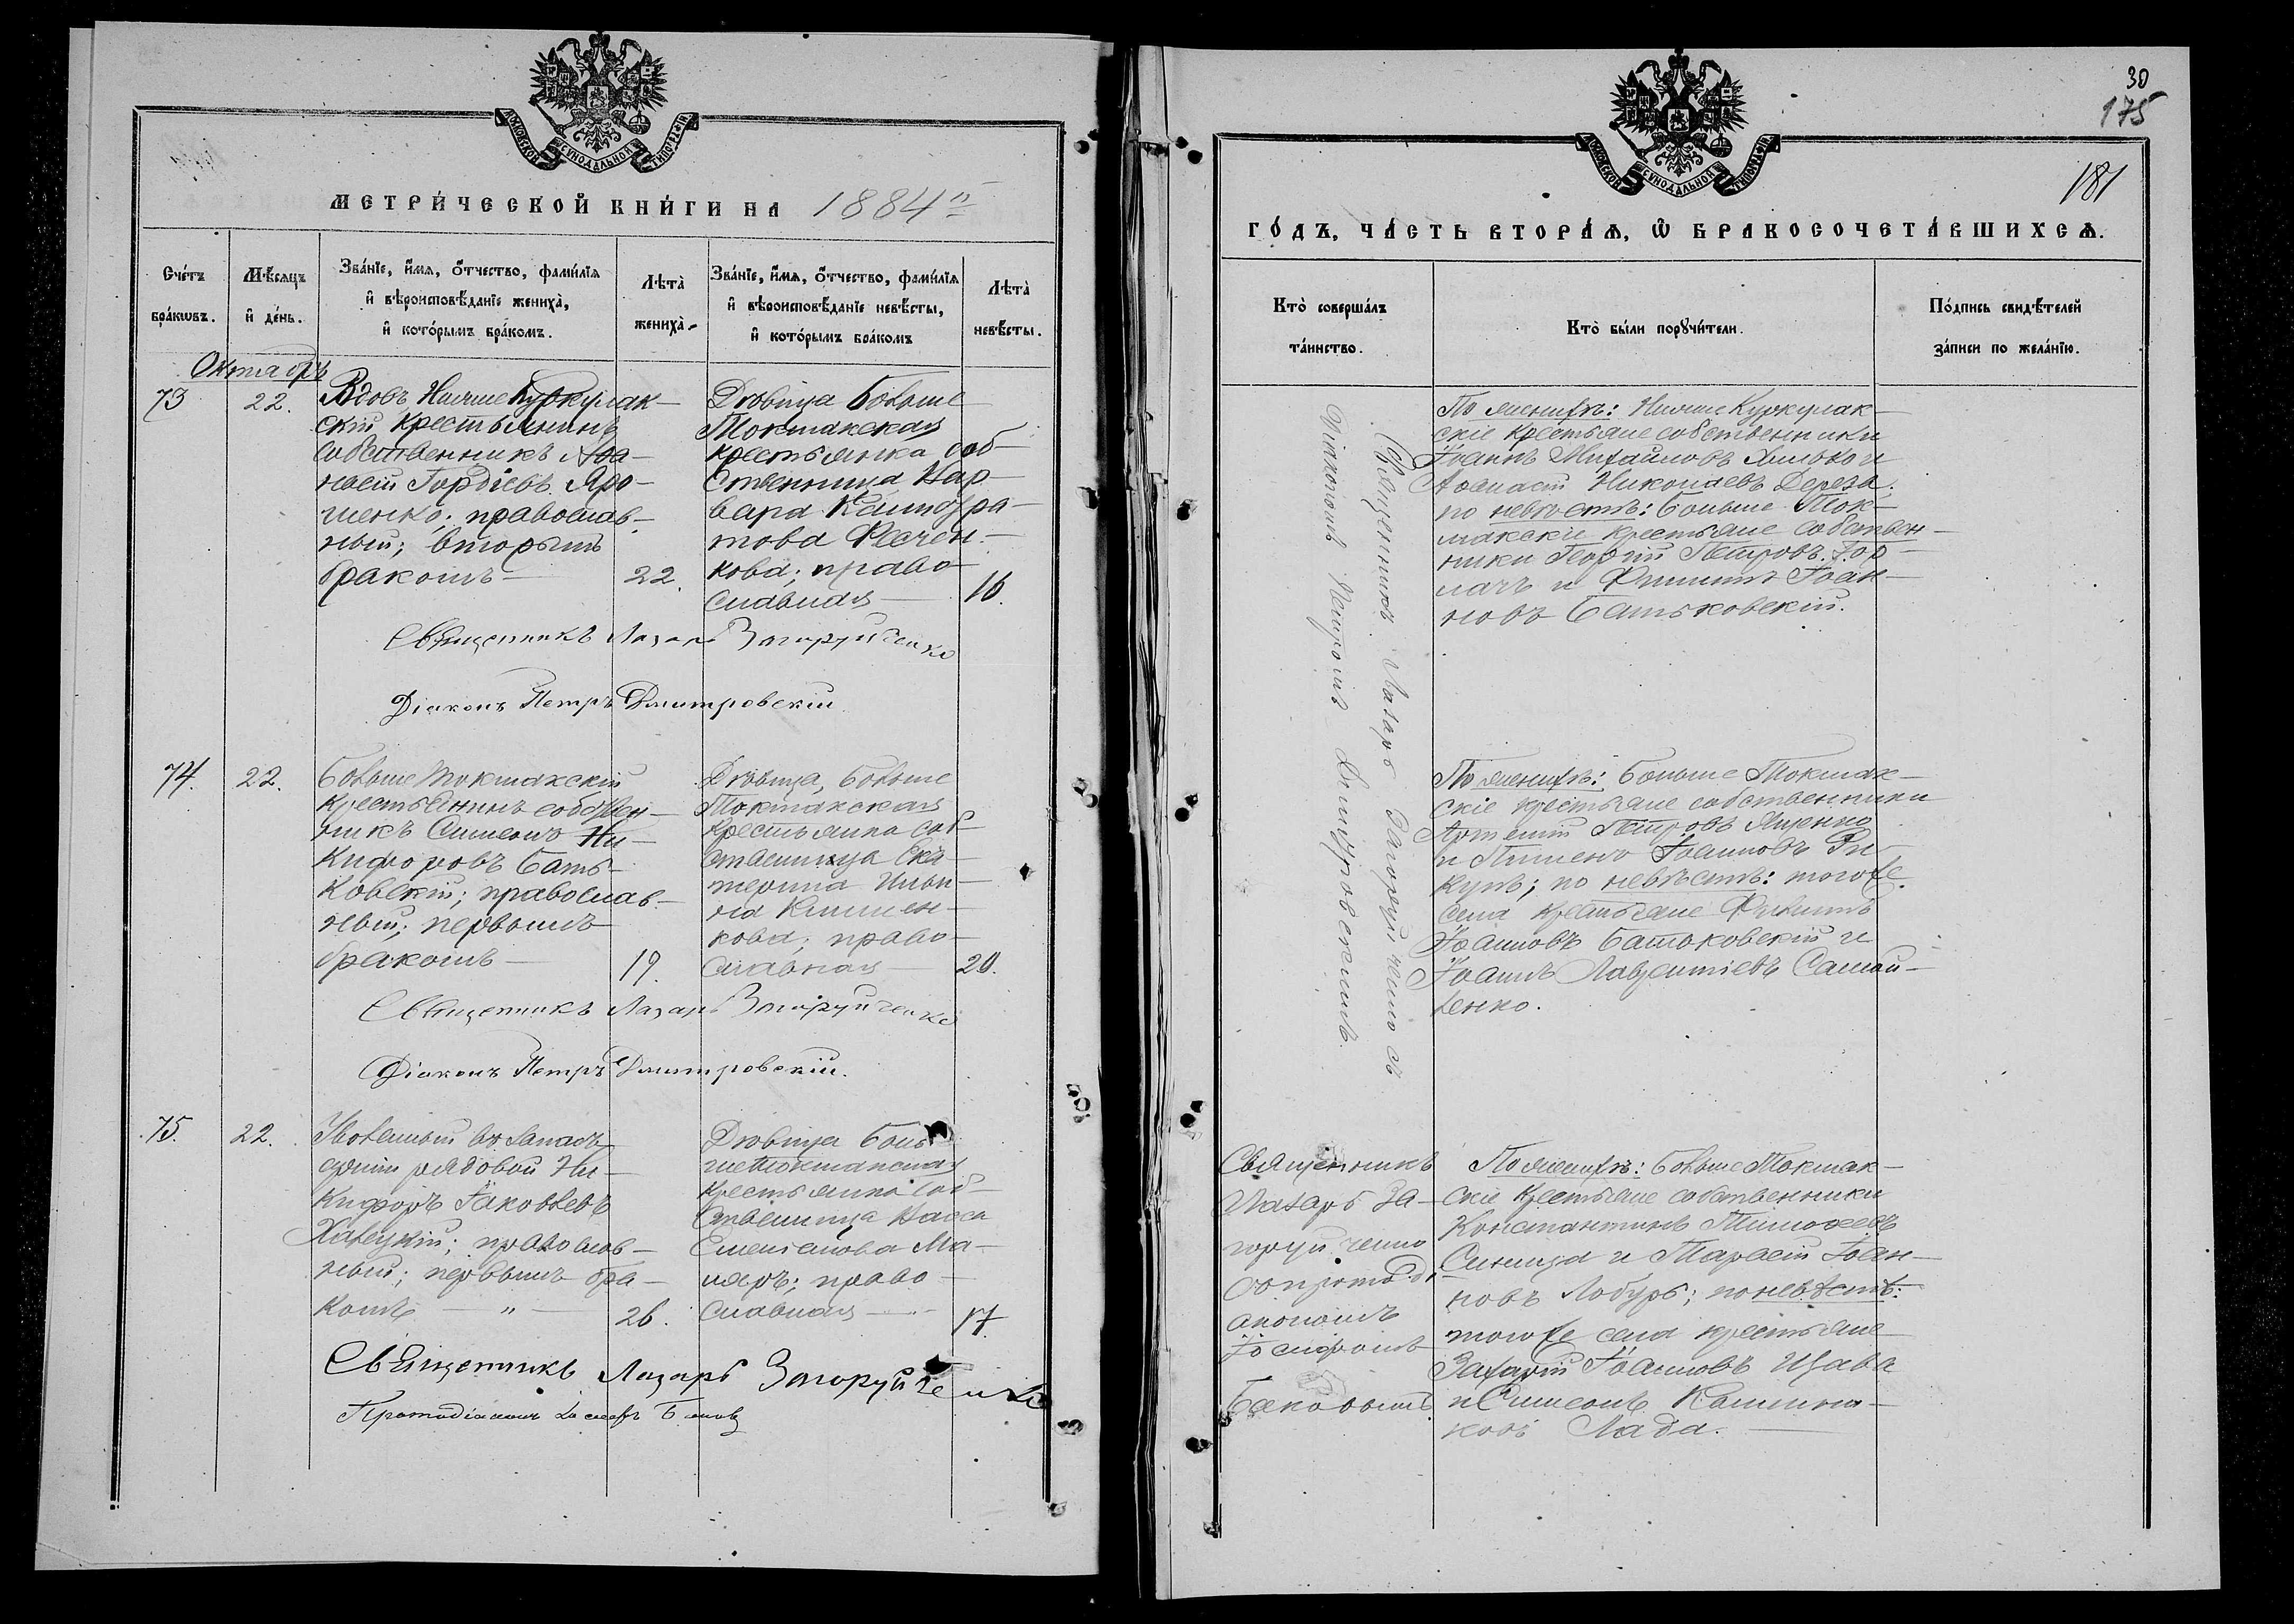 МОСКОВСКОЙ СѴНОДАЛЬНОЙ ТИПОГРАФІИ
МЕТРИ́ЧЕСКОЙ КНИ́ГИ НА 1884й
Сче́тъ бра́кѡвъ.
Мѣ́сяцъ и҆ де́нь.
Зва́нїе, и҆́мѧ, ѻ҆́тчество, фами́лїѧ
и҆ вѣроисповѣ́данїе жениха̀,
и҆ кото́рымъ бра́комъ.
Лѣта̀
жениха̀.
Зва́нїе, и҆́мѧ, ѻ҆́тчество, фами́лїѧ
и҆ вѣроисповѣ́данїе невѣ́сты,
и҆ кото́рымъ бра́комъ
Лѣта̀
невѣ́сты.
Октябрь
73
22.
Вдовъ Нижше Куркулак-
скій крестьянинъ
собственникъ Аѳа-
насій Гордіевъ Яро-
шенко; православ-
ный; вторымъ
бракомъ —
22.
Дѣвица Больше
Токмакская
крестьянка соб-
ственница Вар-
вара
това Ѳесен-
кова; право-
славная —
16.
Священникъ Лазарь Загоруйченко
Діаконъ Петръ Дмитровскій.
74.
22.
Больше Токмакскій
крестьянинъ собствен-
никъ Симеонъ Ни-
кифоровъ Бать-
ковскій; православ-
ный; первымъ
бракомъ —
19.
Дѣвица, Больше
Токмакская
крестьянка соб-
ственница Ека-
терина Ильи-
на Климен-
кова; право-
славная —
20.
Священникъ Лазарь Загоруйченко
Діаконъ Петръ Дмитровскій.
75.
22.
Уволенный въ запасъ
арміи рядовой Ни-
кифоръ Іаковлевъ
православ-
ный; первымъ бра-
комъ — " —
26.
Дѣвица Боль-
шетокмакская
крестьянка соб-
ственница Васса
Емельянова Ма-
ляръ; право-
славная —
17.
Священникъ Лазарь Загоруйченко
Протодіаконъ Іосифъ Баковъ
30
175
181
МОСКОВСКОЙ СѴНОДАЛЬНОЙ ТИПОГРАФІИ
ГО́ДЪ, ЧА́СТЬ ВТОРА́Ѧ, Ѡ҆ БРАКОСОЧЕТА́ВШИХСѦ.
Кто̀ соверша́лъ
та́инство.
Кто̀ бы́ли порꙋчи́тели.
По́дпись свидѣ́телей
за́писи по жела́нїю.
Священникъ Лазарь Загоруйченко съ
Діакономъ Петромъ Дмитровскимъ.
По женихѣ: Нижше Куркулак-
скіе крестьяне собственники
Іоаннъ Михайловъ Хилько и
Аѳанасій Николаевъ Дереза;
по невѣстѣ: Больше Ток-
макскіе крестьяне собствен-
ники Георгій Петровъ
и Филиппъ Іоан-
новъ Батьковскій.
По женихѣ: Больше Токмак-
скіе крестьяне собственники
Артемій Петровъ Яценко
и Пименъ Іоанновъ
по невѣстѣ: того же
села крестьяне Филиппъ
Іоанновъ Батьковскій и
Іоаннъ Лаврентіевъ Самой-
ленко.
Священникъ
Лазарь За-
горуйченко
съ протоді-
акономъ
Іосифомъ
Баковымъ.
По женихѣ: Больше Токмак-
скіе крестьяне собственники
Константинъ Тимоѳеевъ
Синица и Тарасій Іоан-
новъ Лобурь; по невѣстѣ:
того же села крестьяне
Захарій Іоанновъ Щава
и Симеонъ Каллини-
ковъ Лада. —